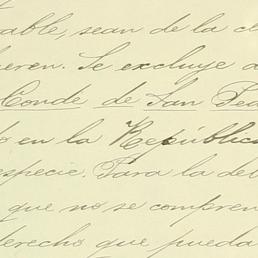 able, sean de la cl
eren. Se excluye d
Conde de San Ped
o en la República
especie. Para la de
que no se compren
derecho que pueda